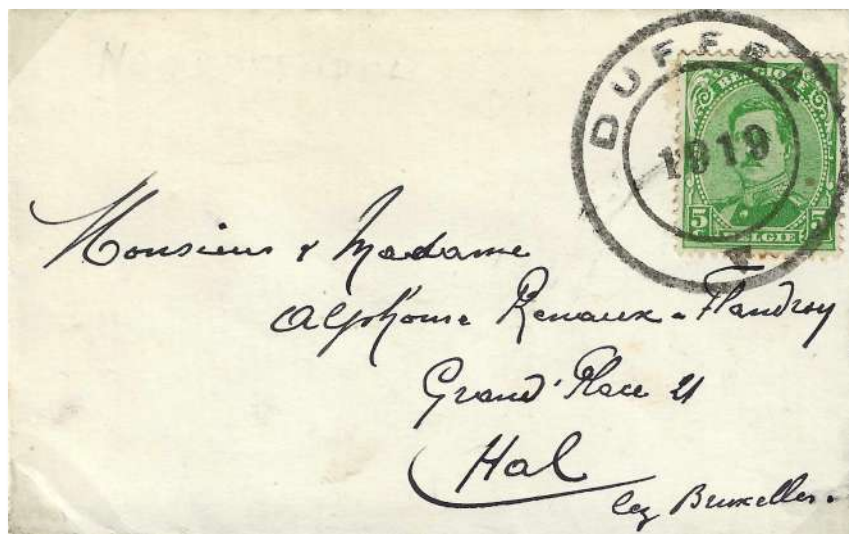 DUFFEL
1919
BELGIQUE
5 C 5
BELGIE
Monsieur & Madame
Alphonse Renaux - Flandroy
Grand'Place 21
Hal
lez Bruxelles.